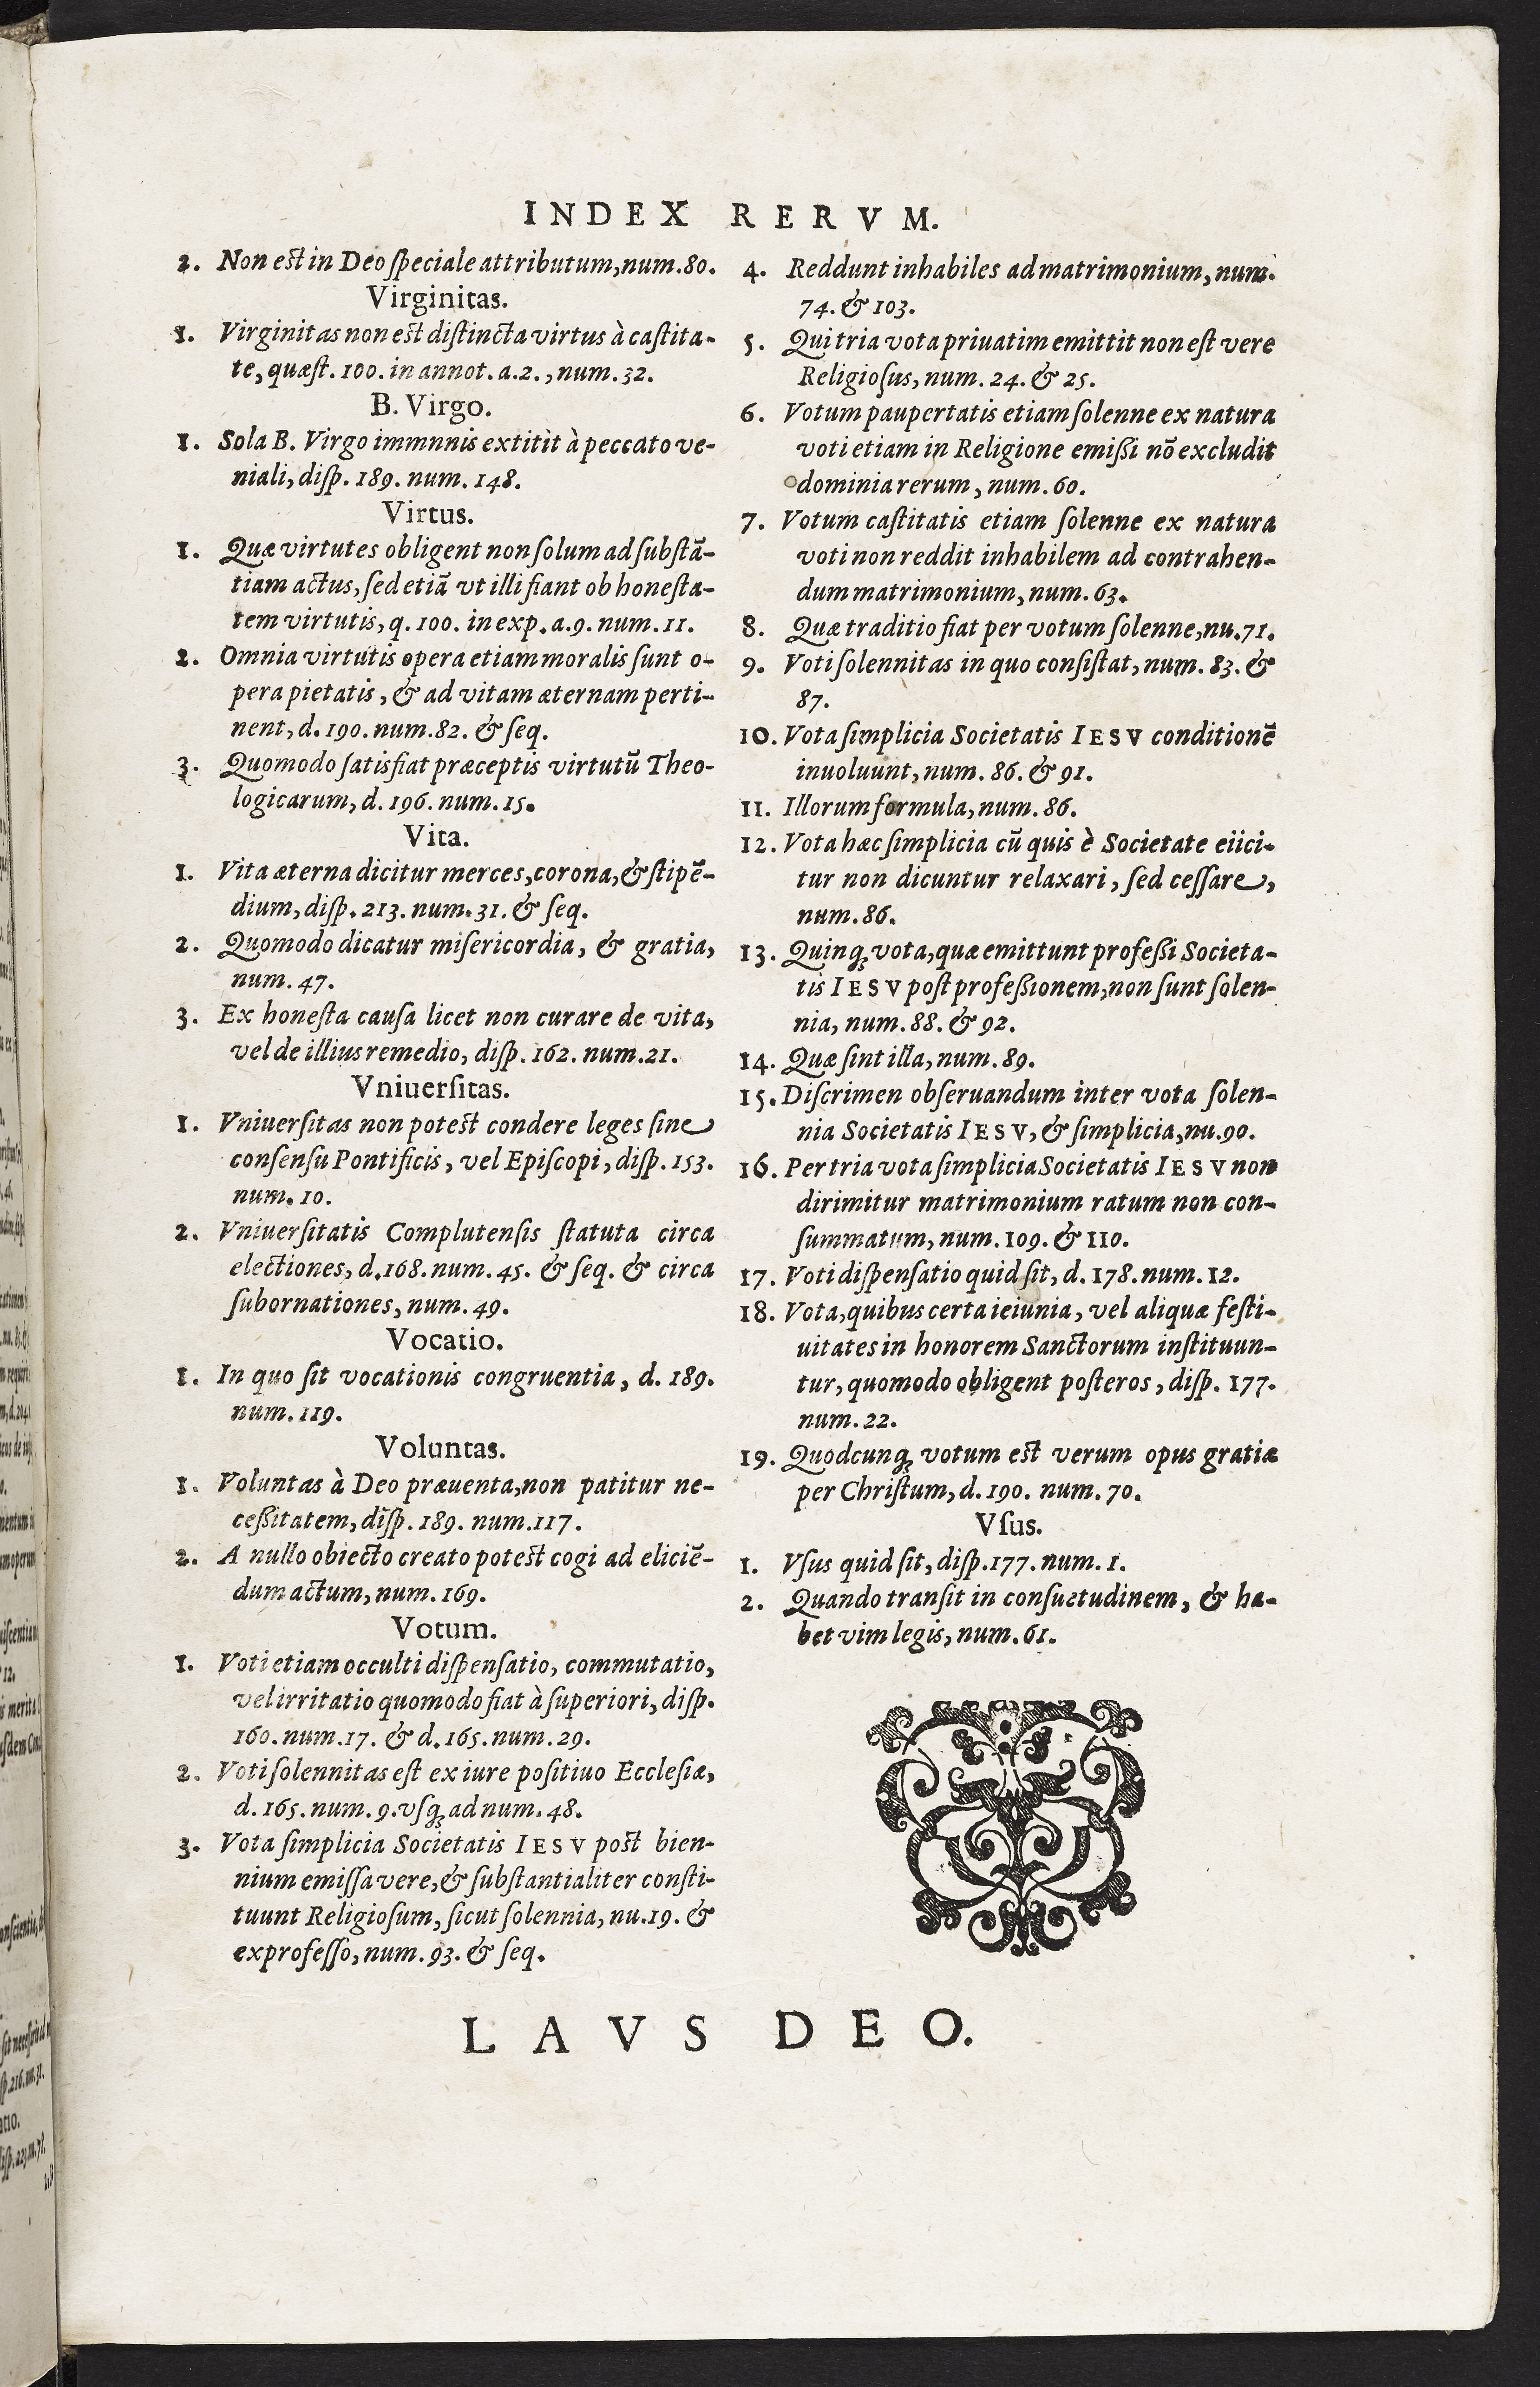 INDEX RERVM.
2. Non est in Deo ſpeciale attributum, num. 80.
Virginitas.
1. Virginitas non est diſtincta virtus à caſtita-
te, quæſt. 100. in annot. a. 2., num. 32.
B. Virgo.
1. Sola B. Virgo immnnis extitit à peccato ve-
niali, diſp. 189. num. 148.
Virtus.
1. Quæ virtutes obligent non ſolum ad ſubſtā-
tiam actus, ſed etiã vt illi fiant ob honeſta-
tem virtutis, q. 100. in exp. a. 9. num. 11.
2. Omnia virtutis opera etiam moralis ſunt o-
pera pietatis, & ad vitam æternam perti-
nent, d. 190. num. 82. & ſeq.
3. Quomodo ſatisfiat præceptis virtutũ Theo-
logicarum, d. 196. num. 15.
Vita.
1. Vita æterna dicitur merces, corona, & ſtipẽ-
dium, diſp. 213. num. 31. & ſeq.
2. Quomodo dicatur miſericordia, & gratia,
num. 47.
3. Ex honeſta cauſa licet non curare de vita,
vel de illius remedio, diſp. 162. num. 21.
Vniuerſitas.
1. Vniuerſitas non potest condere leges ſine
conſenſu Pontificis, vel Epiſcopi, diſp. 153.
num. 10.
2. Vniuerſitatis Complutenſis ſtatuta circa
electiones, d. 168. num. 45. & ſeq. & circa
ſubornationes, num. 49.
Vocatio.
1. In quo ſit vocationis congruentia, d. 189.
num. 119.
Voluntas.
1. Voluntas à Deo præuenta, non patitur ne-
ceßitatem, diſp. 189. num. 117.
2. A nullo obiecto creato potest cogi ad eliciẽ-
dum actum, num. 169.
Votum.
1. Voti etiam occulti diſpenſatio, commutatio,
vel irritatio quomodo fiat à ſuperiori, diſp.
160. num. 17. & d. 165. num. 29.
2. Voti ſolennitas eſt ex iure poſitiuo Eccleſiæ,
d. 165. num. 9. vſq; ad num. 48.
3. Vota ſimplicia Societatis IESV post bien-
nium emiſſa vere, & ſubſtantialiter conſti-
tuunt Religioſum, ſicut ſolennia, nu. 19. &
exprofeſſo, num. 93. & ſeq.
4. Reddunt inhabiles ad matrimonium, num.
74. & 103.
5. Qui tria vota priuatim emittit non eſt vere
Religioſus, num. 24. & 25.
6. Votum paupertatis etiam ſolenne ex natura
voti etiam in Religione emißi nõ excludit
dominia rerum, num. 60.
7. Votum caſtitatis etiam ſolenne ex natura
voti non reddit inhabilem ad contrahen-
dum matrimonium, num. 63.
8. Quæ traditio fiat per votum ſolenne, nu. 71.
9. Voti ſolennitas in quo conſiſtat, num. 83. &
87.
10. Vota ſimplicia Societatis IESV conditionẽ
inuoluunt, num. 86. & 91.
11. Illorum formula, num. 86.
12. Vota hæc ſimplicia cũ quis è Societate eiici-
tur non dicuntur relaxari, ſed ceſſare,
num. 86.
13. Quinq; vota, quæ emittunt profeßi Societa-
tis IESV poſt profeßionem, non ſunt ſolen-
nia, num. 88. & 92.
14. Quæ ſint illa, num. 89.
15. Diſcrimen obſeruandum inter vota ſolen-
nia Societatis IESV, & ſimplicia, nu. 90.
16. Per tria vota ſimplicia Societatis IESV non
dirimitur matrimonium ratum non con-
ſummatum, num. 109. & 110.
17. Voti diſpenſatio quid ſit, d. 178. num. 12.
18. Vota, quibus certa ieiunia, vel aliquæ feſti-
uitates in honorem Sanctorum inſtituun-
tur, quomodo obligent poſteros, diſp. 177.
num. 22.
19. Quodcunq; votum est verum opus gratiæ
per Chriſtum, d. 190. num. 70.
Vſus.
1. Vſus quid ſit, diſp. 177. num. 1.
2. Quando tranſit in conſuetudinem, & ha-
bet vim legis, num. 61.
LAVS DEO.